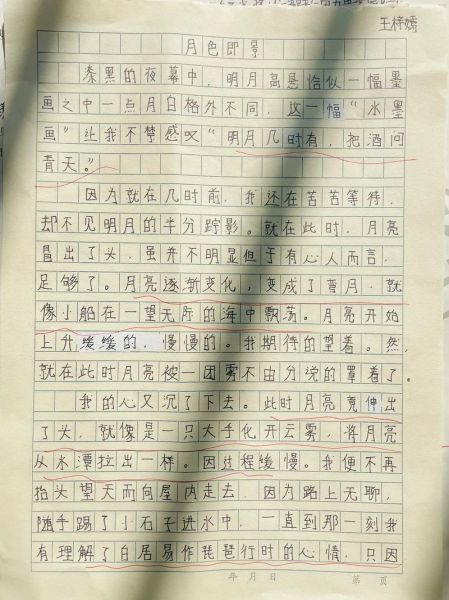 王梓嫣
月色即景
漆黑的夜幕中，明月高悬恰似一幅墨
画之中一点月白格外不同，这一幅“水墨
画”让我不禁感叹“明月几时有，把酒问
青天。”
因为就在几时前，我还在苦苦等待，
却不见明月的半分踪影。就在此时，月亮
冒出了头，虽并不明显但于有心人而言，
足够了。月亮逐渐变化，变成了弯月，就
像小船在一望无际的海中飘荡。月亮开始
上升缓缓的，慢慢的。我期待的望着。然，
就在此时月亮被一团雾不由分说的罩着了。
我的心又沉了下去。此时月亮竟伸出
了头，就像是一只大手化开云雾，将月亮
从水潭拉出一样。因过程缓慢。我便不再
抬头望天而向屋内走去，因为路上无聊，
随手踢了小石子进水中，一直到那一刻我
有理解了白居易作琵琶行时的心情，只因
年 月 日
第 页